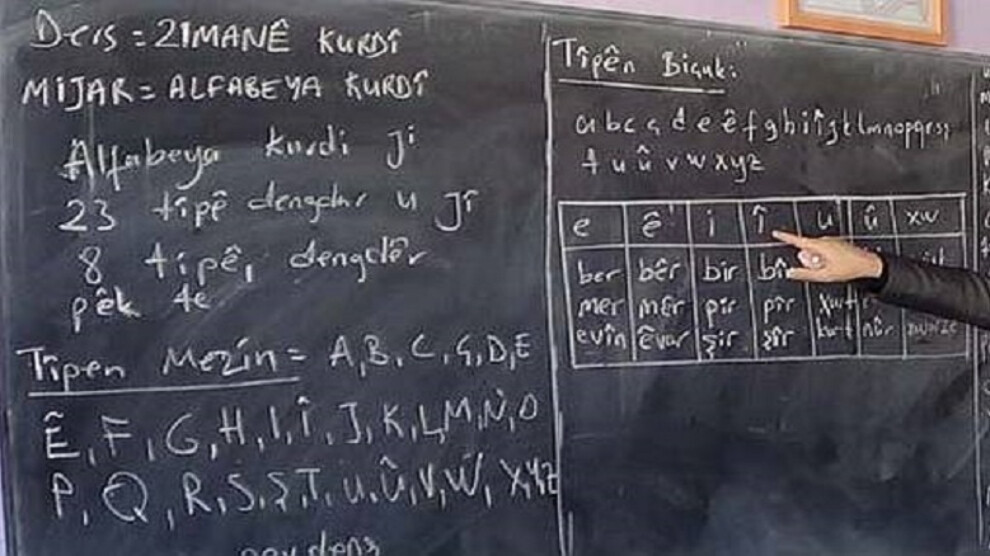 Ders = ZIMANÊ KURDÎ
MIJAR = ALFABEYA KURDÎ
Alfabeya kurdi ji
23 tîpê dengdar u jî
8 tîpê, dengdêr
pêk te
Tîpen Mezin = A, B, C, Ç, D, E
Ê, F, G, H, I, Î, J, K, L, M, N, O
P, Q, R, S, Ş, T, U, Û, V, W, X, Y, Z
Tîpên Biçuk:
a b c ç d e ê f g h i î j k l m n o p q r s ş
t u û v w x y z
e ê i î u û xw
ber bêr bir
mer mêr pir pîr
evîn êvar şir şîr kurt nûr xwarze